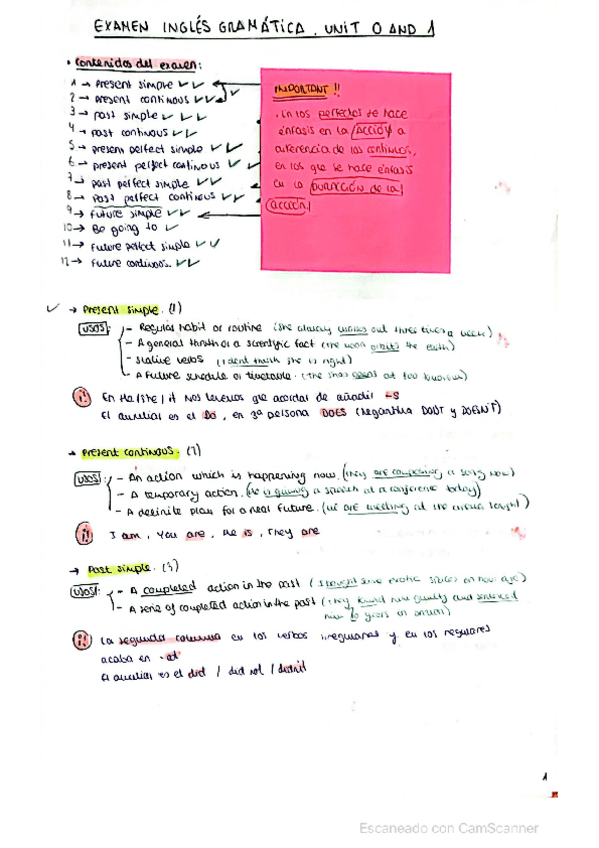 EXAMEN INGLÉS GRAMÁTICA. UNIT 0 AND 1
• Contenidos del examen:
1 → Present simple ✓✓
2 → present continuous ✓✓✓
3 → past simple ✓ ✓ ✓
4 → past continuous ✓✓
5 → present perfect simple ✓✓
6 → present perfect continuous ✓
7 → past perfect simple ✓✓
8 → Past perfect continuous ✓✓
9 → Future simple ✓✓
10 → Be going to ✓
11 → Future perfect simple ✓✓
12 → Future continuous. ✓✓
IMPORTANT !!
• En los perfectos se hace
énfasis en la ACCIÓN a
diferencia de los continuos,
en los que se hace énfasis
en la DURACIÓN de la
acción
✓ → Present simple. (1)
USOS: - Regular habit or routine (she always works out three times a week)
- A general thruth or a scientific fact (the moon orbits the earth)
- Stative verbs (I dont think she is right)
- A Future schedule or timetable. (the at tomorrow)
¡! En He/she/it nos tenemos que acordar de añadir -S
El auxiliar es el DO, en 3ª persona DOES (Negativa DON'T y DOESN'T)
→ Present continous. (2)
USOS: - An action which is happening now. (they are composing a song now)
- A temporary action. (He is giving a speech at a conference today)
- A definite plan for a near future. (we are meeting at the tonight)
¡! I am, You are, He is, They are
→ Past simple. (3)
USOS: - A completed action in the past (I bought some exotic an hour ago)
- A serie of completed action in the past (they found him guilty and sentenced
him to years in prison)
¡! La segunda columna en los verbos irregulares y en los regulares
acaba en -ed
El auxiliar es el did / did not / didn't
1
Escaneado con CamScanner